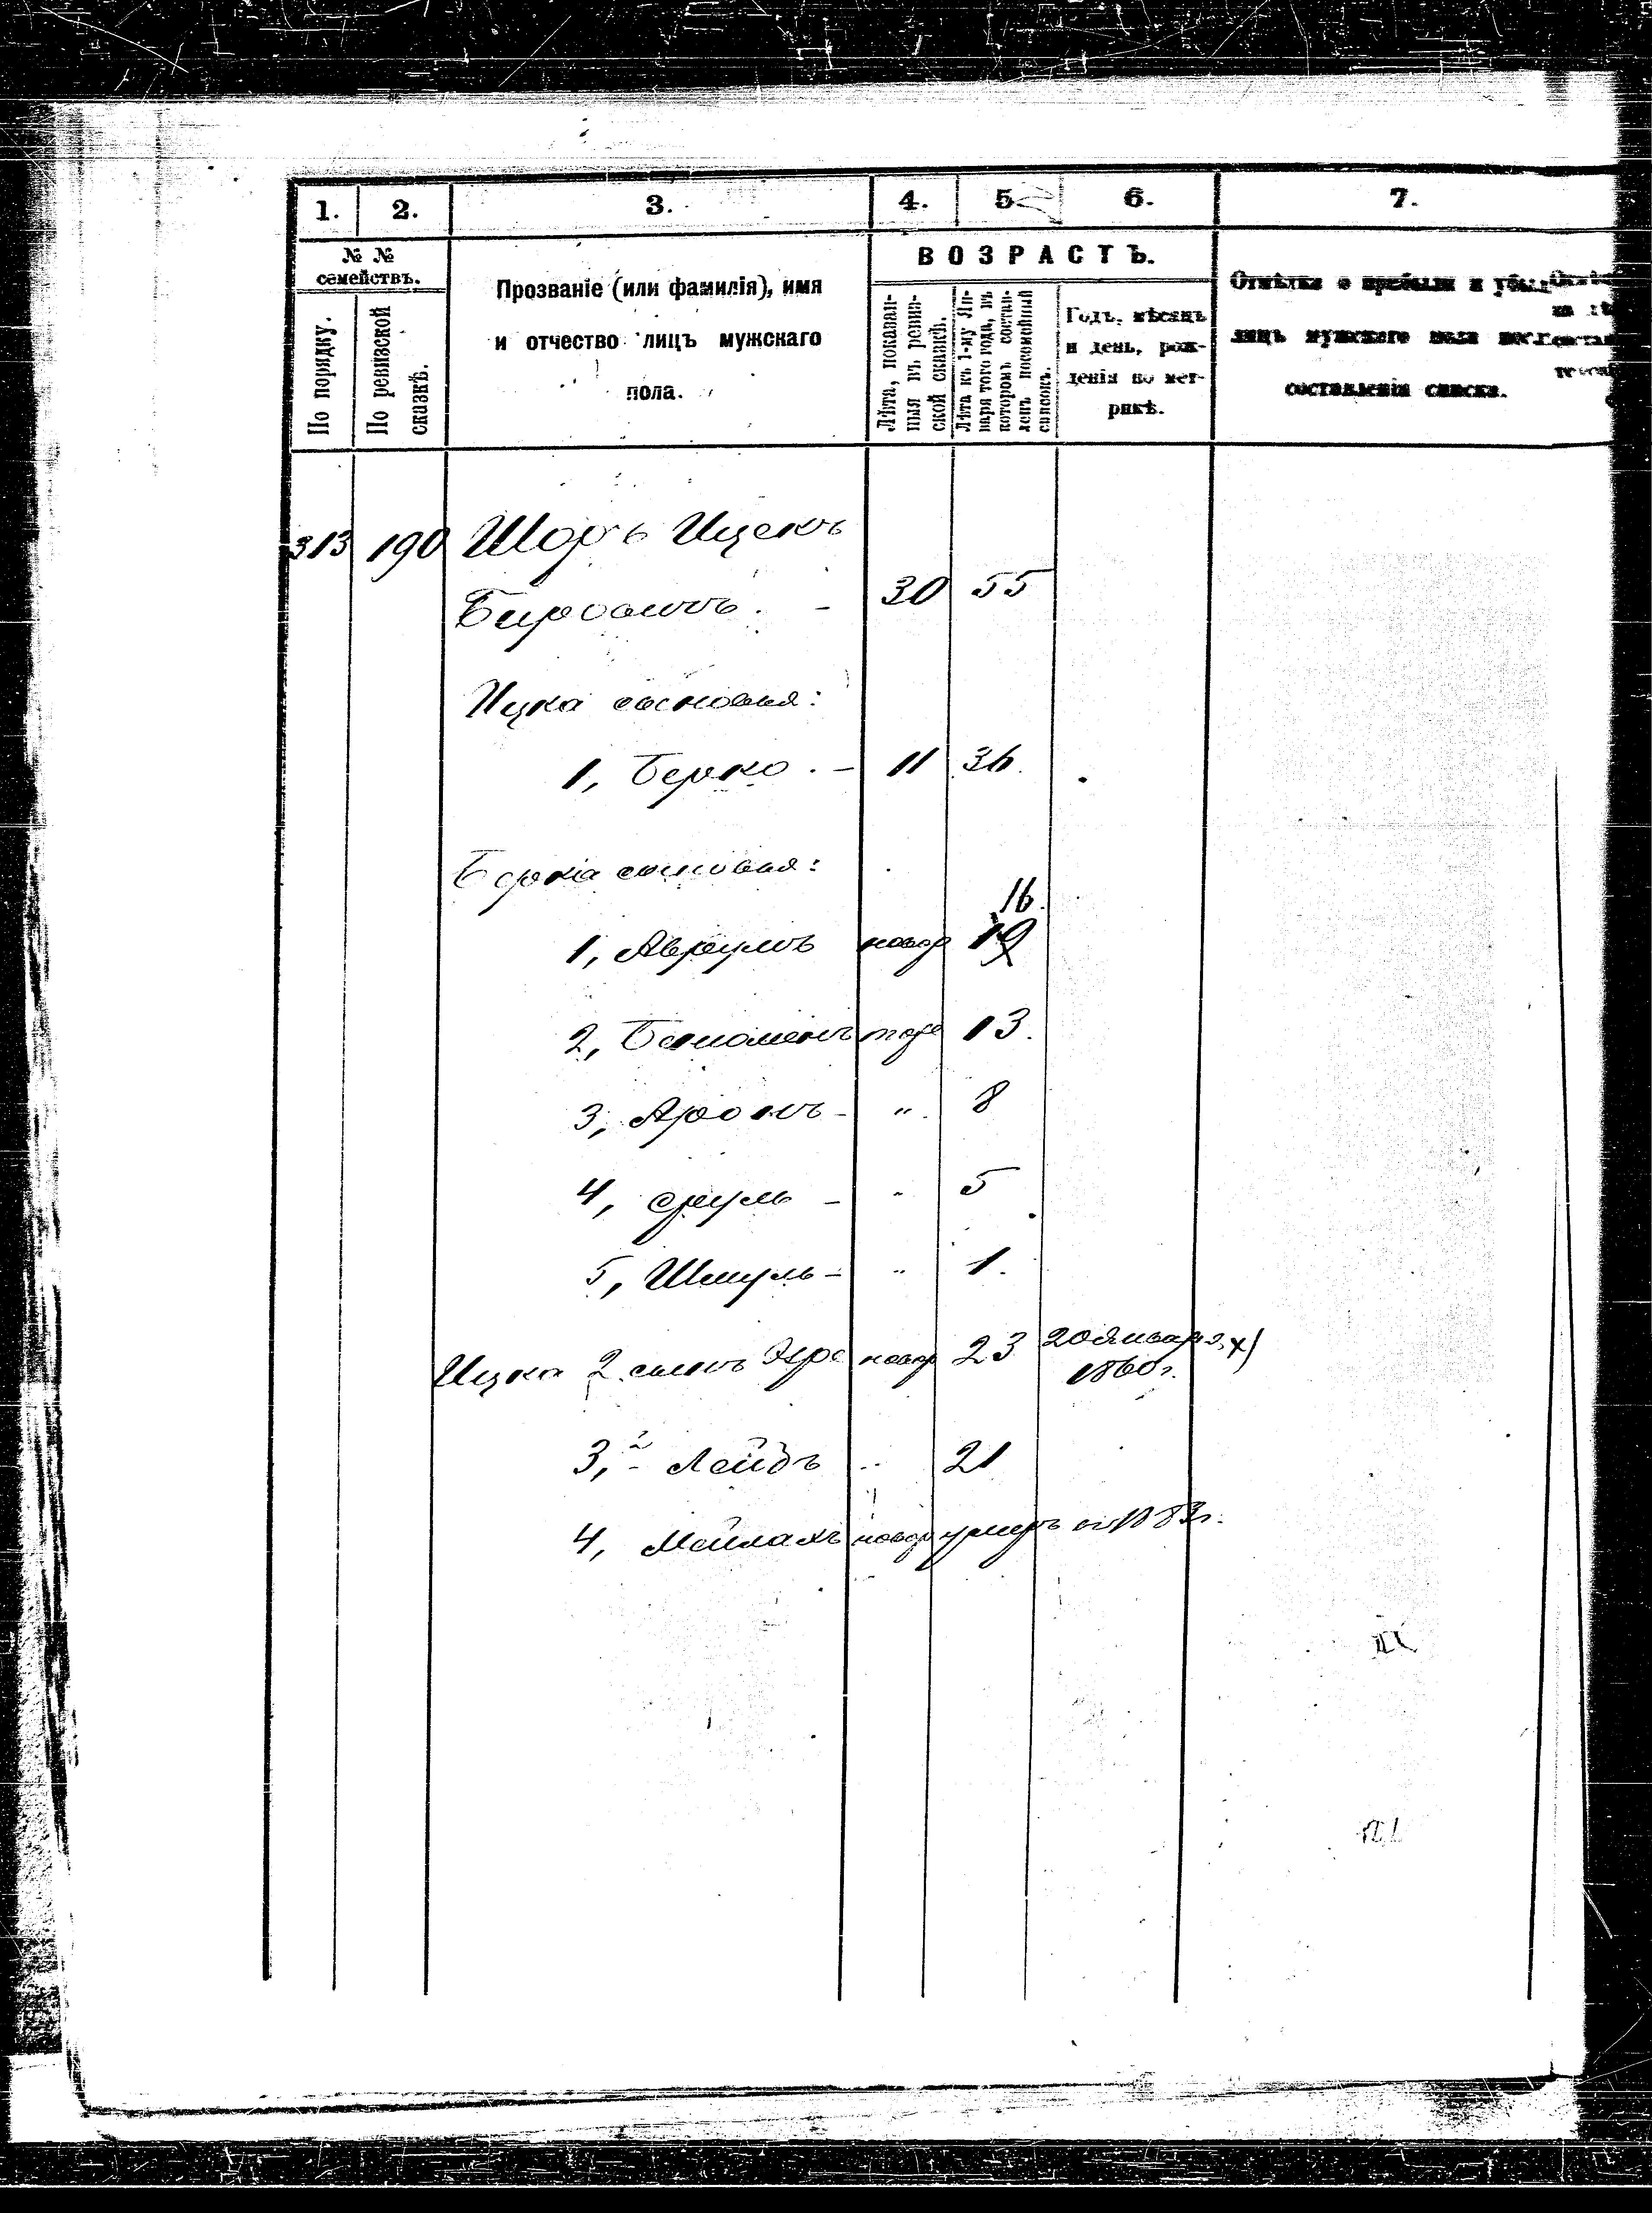 1. 2. 3. 4. 5. 6. 7.
№ №
семействъ.
По порядку.
По ревизской
сказкѣ.
Прозваніе (или фамилія), имя
и отчество лицъ мужскаго
пола.
ВОЗРАСТЪ.
Лѣта, показан-
ныя въ ревиз-
ской сказкѣ.
Лѣта къ 1-му Ян-
варя того года, въ
которомъ состав-
ленъ посемейный
списокъ.
Годъ, мѣсяцъ
и день, рож-
денія по мет-
рикѣ.
Отмѣтка о прибыли и убыли
лицъ мужского пола послѣ
составленія списка.
313 190 Шоръ Ицекъ
30 55
Ицка сыновья:
1, Берко. - 11 36.
Берка сыновья:
16.
1, Аврумъ новор 19
2, тоже 13.
3, Аронъ - " 8
4, Сруль - " 5
5, Шмуль - " 1.
Ицка 2 сынъ новор 23 20 Января х)
1860 г.
3, - Лейбъ " 21
4, Мейлахъ новор умеръ въ 1883 г.